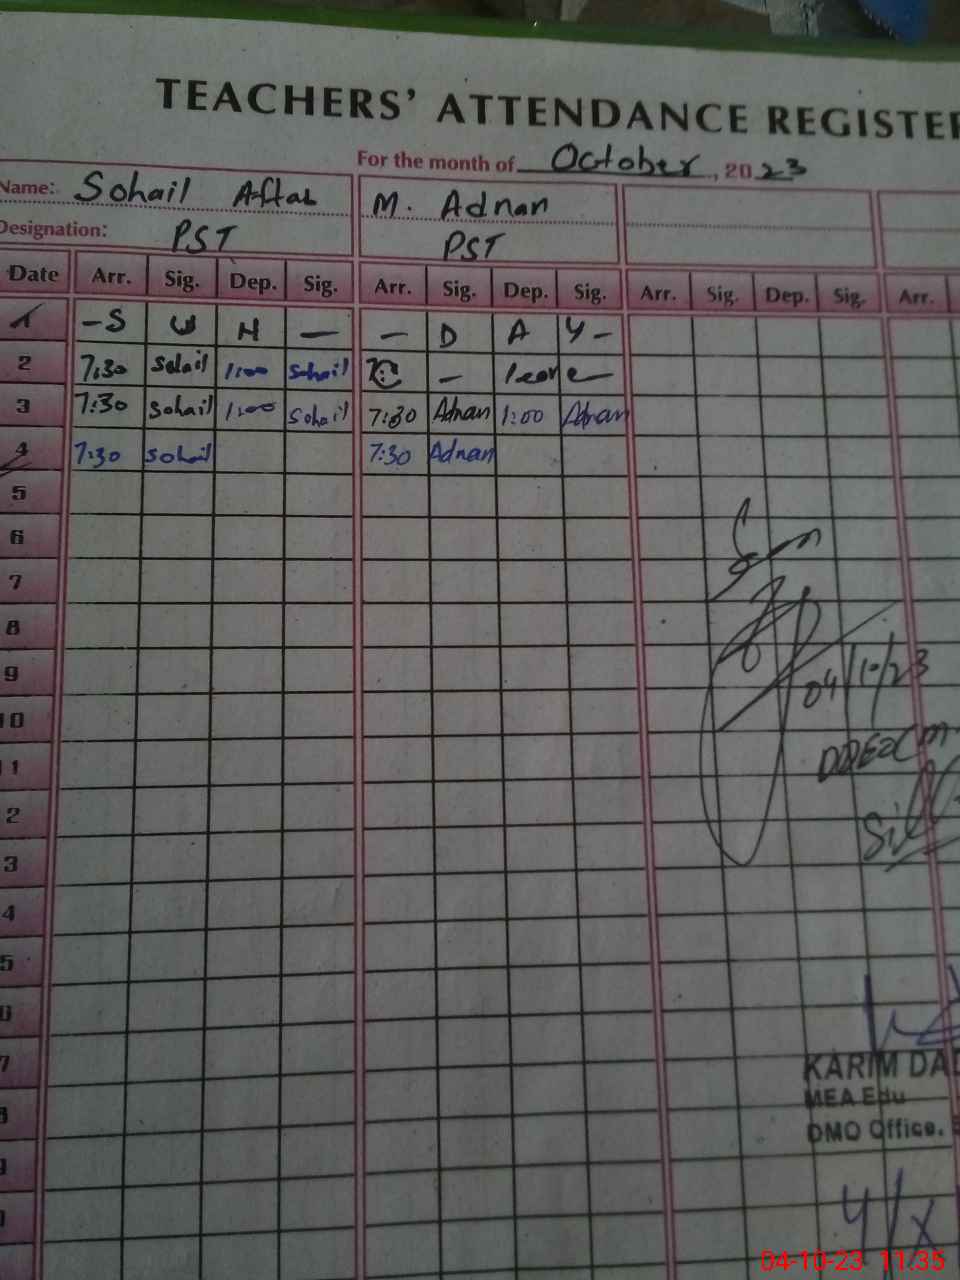 TEACHERS' ATTENDANCE REGISTER
For the month of October, 2023
Name: Sohail Aftab M. Adnan
Designation: PST PST
Date Arr. Sig. Dep. Sig. Arr. Sig. Dep. Sig. Arr. Sig. Dep. Sig. Arr.
1 - S U N - - D A Y -
2 7:30 Sohail 1:00 Sohail - leave -
3 7:30 Sohail 1:00 Sohail 7:30 Adnan 1:00 Adnan
4 7:30 Sohail 7:30 Adnan
5
6
7
8
9
04/10/23
10
11
2
3
4
5
6
7
KARIM DAD
MEA Edu
8
DMO Office.
9
4/X
04-10-23 11:35